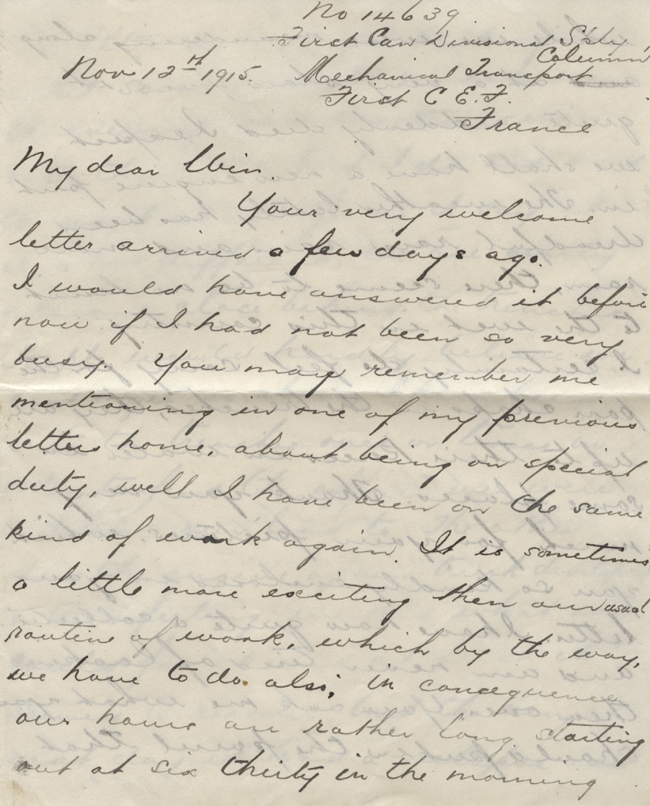 No 14639
First Can Divisional S'ply
Column
Nov 12th 1915. Mechanical Transport
First C E. F.
France
My dear Win.
Your very welcome
letter arrived a few days ago.
I would have answered it before
now if I had not been so very
busy. You may remember me
mentioning in one of my previous
letters home, about being on special
duty, well I have been on the same
kind of work again. It is sometimes
a little more exciting then our usual
routine of work, which by the way,
we have to do also, in consequence
our hours are rather long starting
out at six thirty in the morning